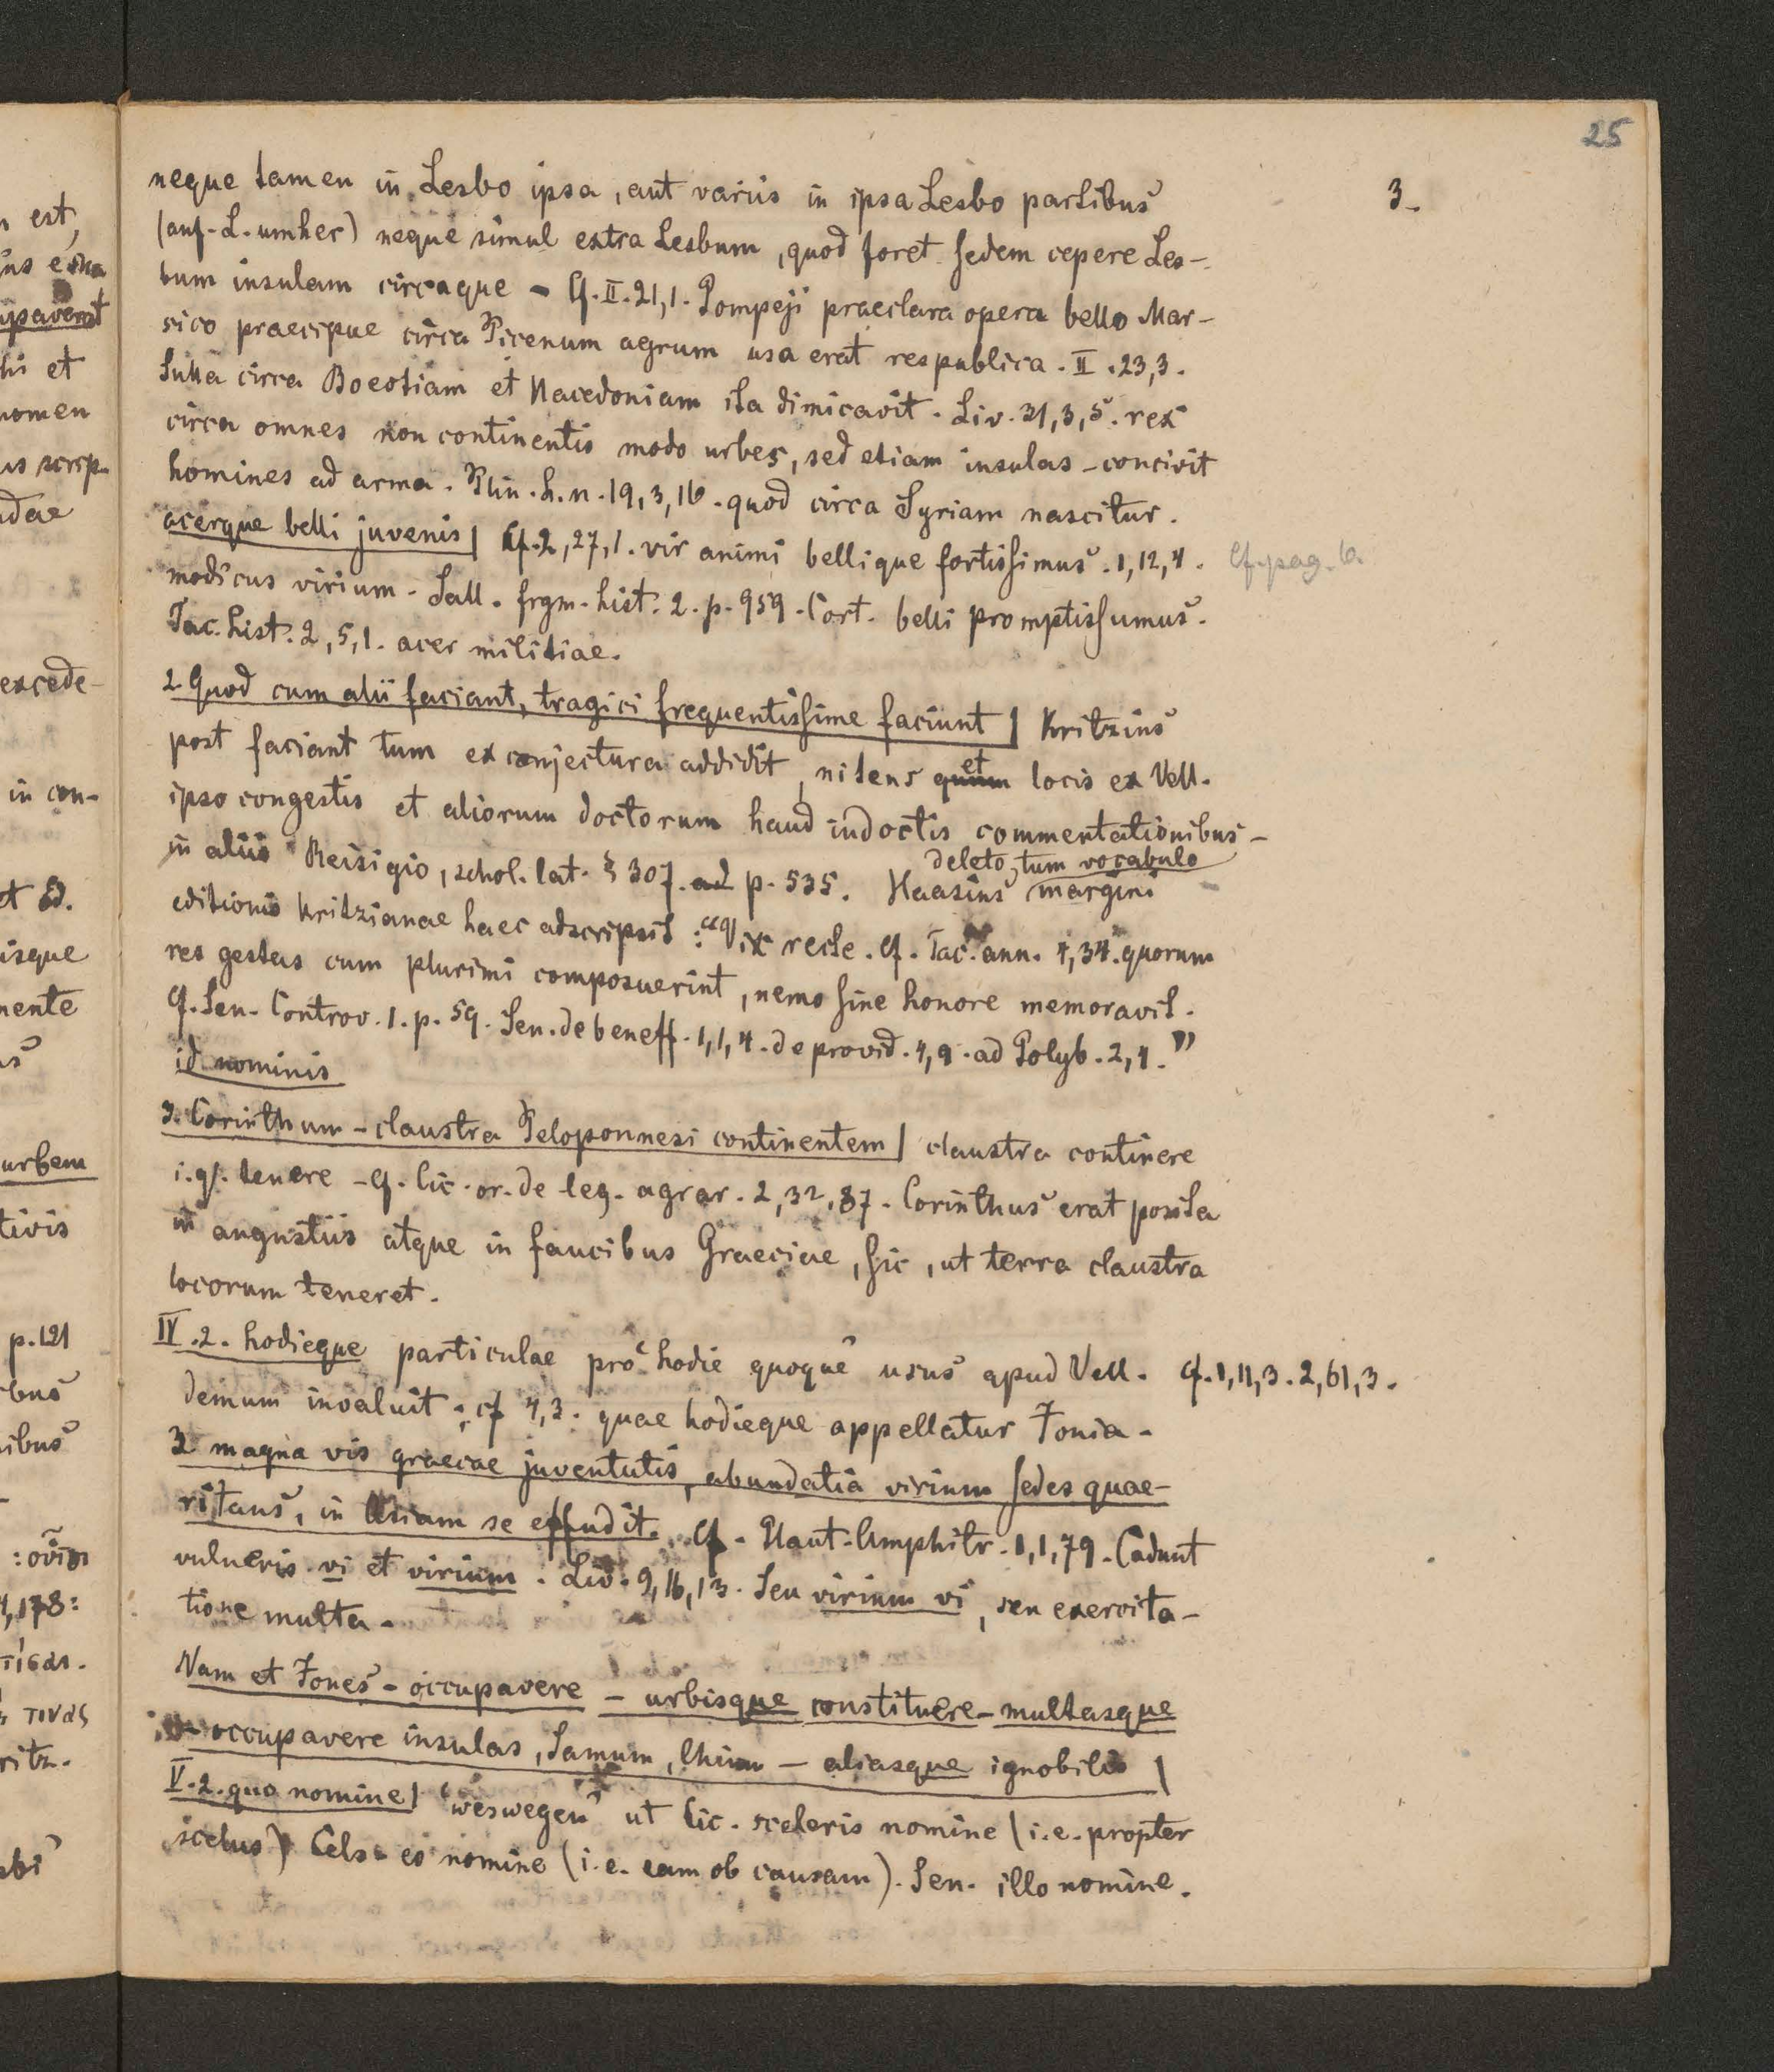 25
3.
neque tamen in Lesbo ipsa, aut variis in ipsa Lesbo partibus
(auf L. umher) neque simul extra Lesbum, quod foret sedem cepere Les-
bum insulam circaque - Cf. II. 21,1. Pompeji praeclara opera bello Mar-
sico praecipue circa Picenum agrum usa erat respublica. II. 23,3.
Sulla circa Boeotiam et Macedoniam ita dimicavit. Liv. 31,3,5. rex
circa omnes non continentis modo urbes, sed etiam insulas - concivit
homines ad arma. Plin. h. n. 19,3,16. quod circa Syriam nascitur.
acerque belli juvenis] Cf. 2,27,1. vir animi bellique fortissimus. 1,12,4. Cf. pag. 6
modicus virium. Sall. frgm. hist. 2. p. 959. Cort. belli promptissumus.
Tac. hist. 2,5,1. acer militiae.
2 Quod cum alii faciant, tragici frequentissime faciunt] Kritzius
post faciant tum ex conjectura addidit, nitens quum et locis ex Vell.
ipso congestis et aliorum doctorum haud indoctis commentationibus -
in aliis Reisigio, schol. lat. § 307. ad p. 535. Haasius deleto tum vocabulo margini
editionis Kritzianae haec adscripsit: "Vix recte. Cf. Tac. ann. 4,34. quorum
res gestas cum plurimi composuerint, nemo sine honore memoravit.
Cf. Sen. Controv. 1. p. 59. Sen. de beneff. 1,1,4. de provid. 4,9. ad Polyb. 2,4."
id nominis
3. Corinthum - claustra Peloponnesi continentem] claustra continere
i. q. tenere - Cf. Cic. or. de leg. agrar. 2,32,87. Corinthus erat posita
in angustiis atque in faucibus Graeciae, sic, ut terra claustra
locorum teneret.
IV. 2. hodieque particulae pro "hodie quoque" usus apud Vell. Cf. 1,11,3. 2,61,3.
demum invaluit; cf 4,3. quae hodieque appellatur Ionia.
3 magna vis graecae juventutis, abundatia virium sedes quae-
ritans, in Asiam se effudit. Cf. Plaut. Amphitr. 1,1,79. Cadunt
vulneris vi et virium. Liv. 9,16,13. Seu virium vi, seu exercita-
tione multa.
Nam et Iones - occupavere - urbisque constituere - multasque
- occupavere insulas, Samum, Chium - aliasque ignobilis]
V. 2. quo nomine] "weswegen" ut Cic. sceleris nomine (i. e. propter
scelus) Cels. eo nomine (i. e. eam ob causam). Sen. illo nomine.